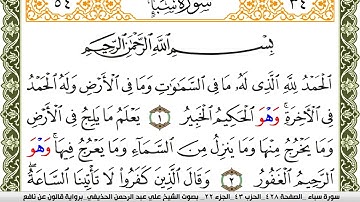 ٥٤ سُورَةُ سَبَإٍ ٣٤
بِسْمِ اللَّهِ الرَّحْمَٰنِ الرَّحِيمِ
الْحَمْدُ لِلَّهِ الَّذِي لَهُ مَا فِي السَّمَٰوَٰتِ وَمَا فِي الْأَرْضِ وَلَهُ الْحَمْدُ
فِي الْآخِرَةِ وَهْوَ الْحَكِيمُ الْخَبِيرُ ١ يَعْلَمُ مَا يَلِجُ فِي الْأَرْضِ
وَمَا يَخْرُجُ مِنْهَا وَمَا يَنزِلُ مِنَ السَّمَآءِ وَمَا يَعْرُجُ فِيهَا وَهْوَ
الرَّحِيمُ الْغَفُورُ ٢ وَقَالَ الَّذِينَ كَفَرُوا لَا تَأْتِينَا السَّاعَةُ
سورة سباء . الصفحة ٤٢٨ . الحزب ٤٣ . الجزء ٢٢ . بصوت الشيخ علي عبد الرحمن الحذيفي . برواية قالون عن نافع